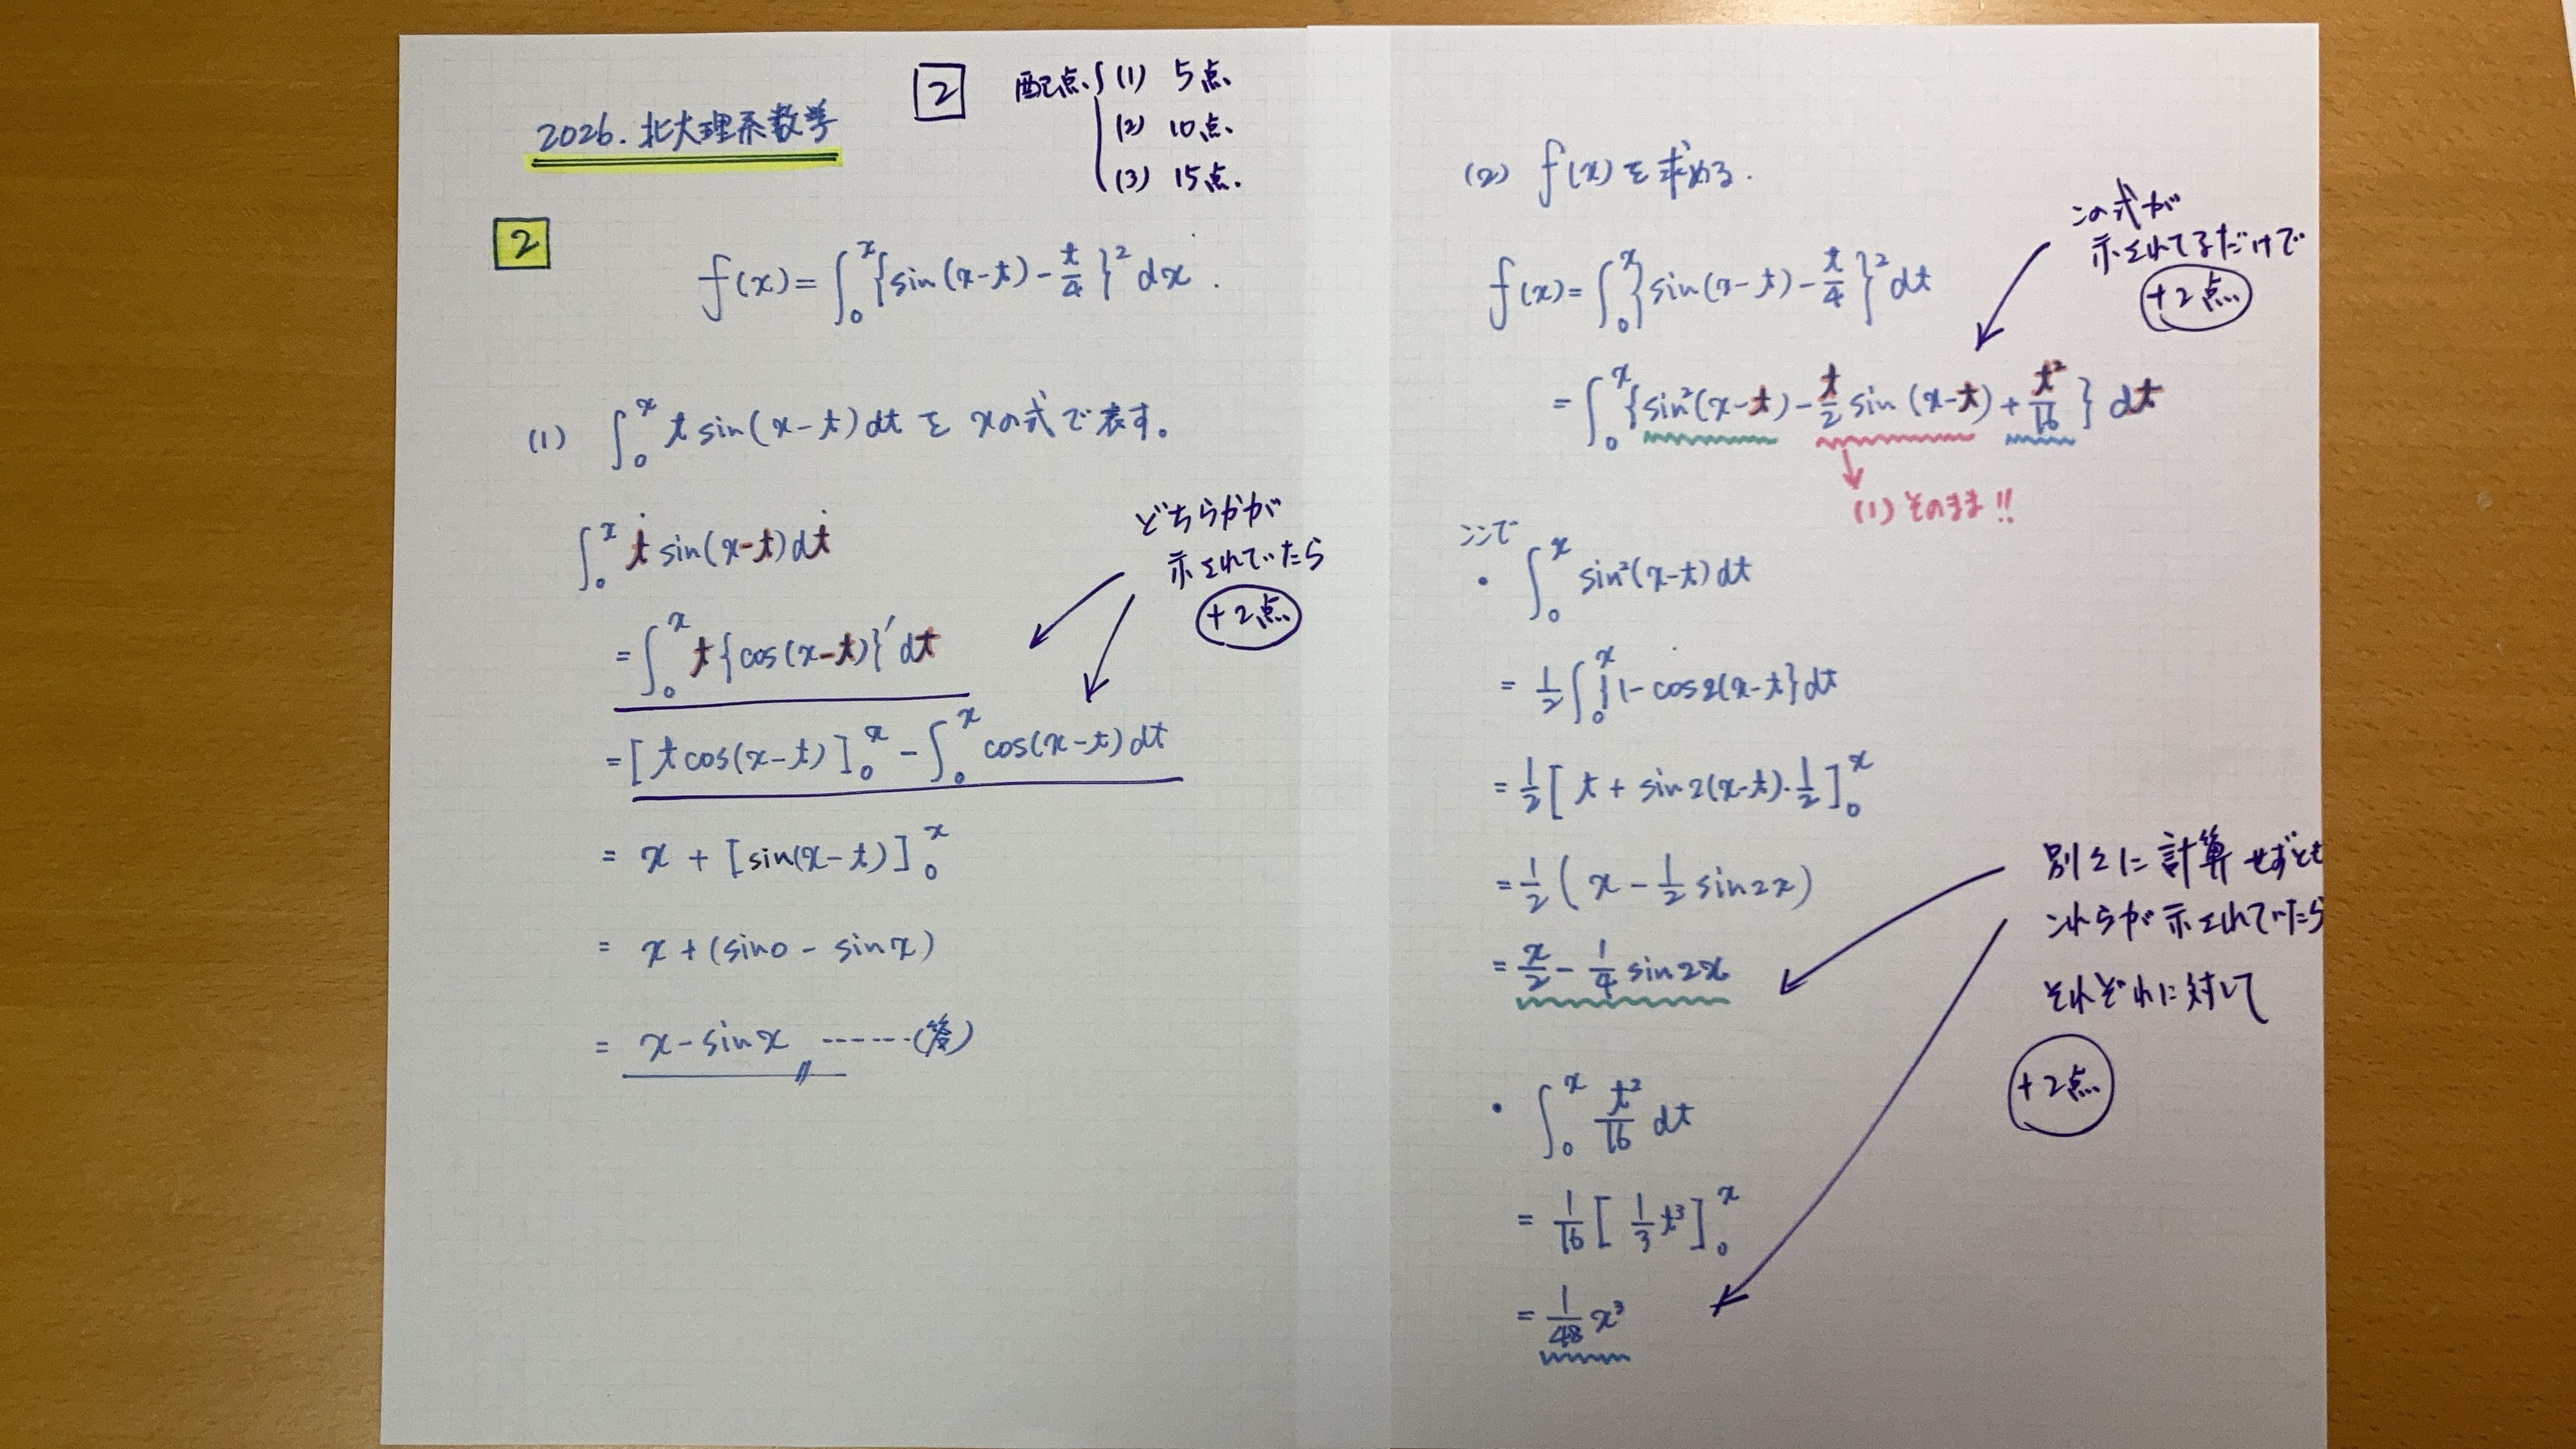 2026.北大理系数学
2 配点 (1) 5点.
(2) 10点.
(3) 15点.
2
f(x)=∫₀ˣ{sin(x-t)-t/4}²dx.
(1) ∫₀ˣ t sin(x-t)dt を xの式で表す。
∫₀ˣ t sin(x-t)dt
=∫₀ˣ t{cos(x-t)}'dt
=[t cos(x-t)]₀ˣ-∫₀ˣ cos(x-t)dt
= x+[sin(x-t)]₀ˣ
= x+(sin0-sinx)
= x-sinx ------(答)
どちらかが
示されていたら
+2点
(2) f(x)を求める.
f(x)=∫₀ˣ{sin(x-t)-t/4}²dt
=∫₀ˣ{sin²(x-t)-t/2 sin(x-t)+t²/16}dt
この式が
示されてるだけで
+2点
(1)そのまま!!
ここで
・∫₀ˣ sin²(x-t)dt
= 1/2∫₀ˣ{1-cos2(x-t}dt
= 1/2[t+sin2(x-t)・1/2]₀ˣ
= 1/2(x-1/2 sin2x)
= x/2-1/4 sin2x
・∫₀ˣ t²/16 dt
= 1/16[1/3 t³]₀ˣ
= 1/48 x³
別々に計算せずとも
これらが示されていたら
それぞれに対して
+2点